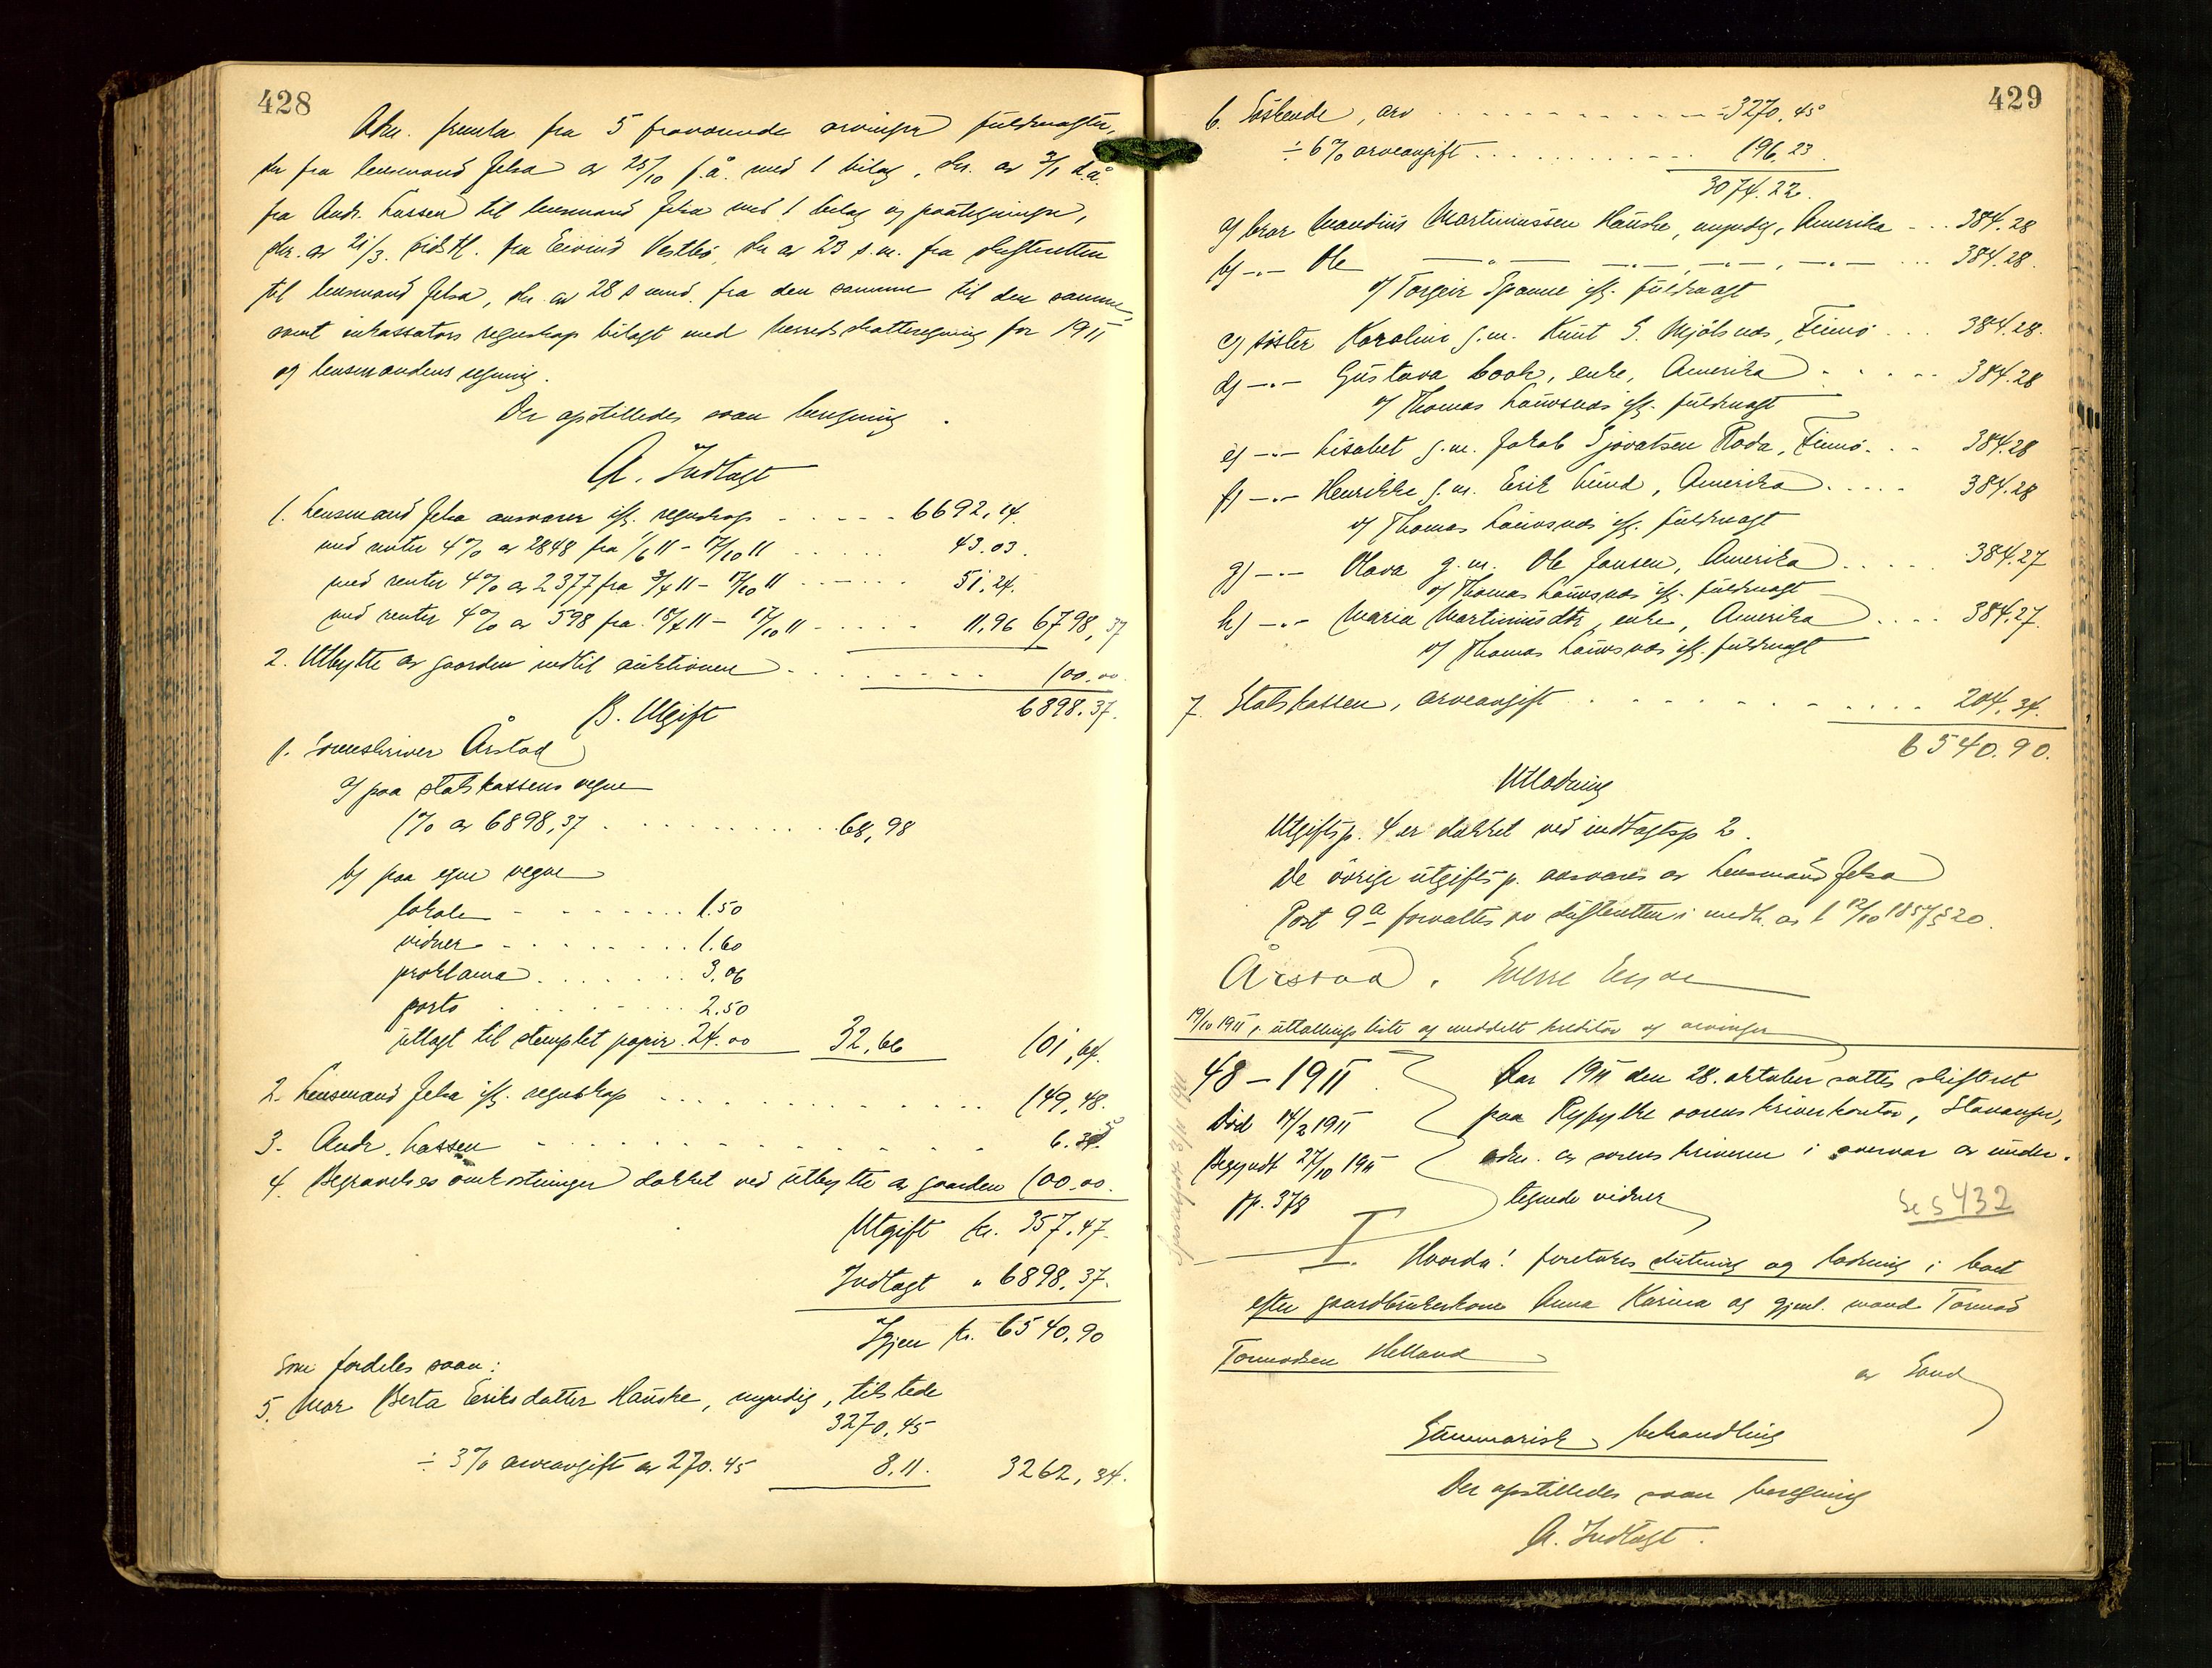 428
Adm. fremla fra 5 fraværende arvinger fuldmagter,
skr fra lensmand Jelsa av 25/10 f.å. med 1 bilag, skr. av 3/1 d.å.
fra Andr. Lassen til lensmand Jelsa med 1 bilag og paategninger,
skr. av 21/3. fra Eivind Vestbø, skr av 23 s.m. fra skifteretten
til lensmand Jelsa, skr. av 28 s mnd. fra den samme til den samme,
samt inkassators regnskap bilagt med herredskatteregning for 1911
og lensmandens regning.
Der opstilledes saan beregning.
A. Indtægt
1. Lensmand Jelsa ansvarer ifl. regnskap - - - - - 6692,14.
med renter 4% av 2848 fra 1/6 11 - 17/10 11 . . . . . 43.03.
med renter 4% av 2377 fra 3/4 11 - 17/10 11 - - - - - 51.24.
med renter 4% av 598 fra 18/4 11 - 17/10 11 - - - - - 11,96 6798,37
2. Utbytte av gaarden indtil auktionen - . . . . . . . 100.00.
6898.37.
B. Utgift
1. Sorenskriver Årstad
a) paa statskassens vegne
1% av 6898,37 . . . . . . . . . . 68,98
b) paa egne vegne
lokale - - - - - . . . 1.50
vidner - - . . . . . . 1.60
proklama . . . . . . 3,06
porto . . . . . . . 2.50
utlagt til stemplet papir. 24.00 32,66 101,64.
2. Lensmand Jelsa ifl. regnskap . . . . . . . . . . . 149,48.
3. Andr. Lassen - - - - - - - - - - - 6.35
4. Begravelsesomkostninger dækket ved utbytte av gaarden 100.00.
Utgift kr. 357.47.
Indtægt " 6898.37.
Igjen kr. 6540,90
som fordeles saan:
5. Mor Berta Eriksdatter Hauske, myndig, tilstede
3270,45
÷ 3% arveavgift av 270.45 8,11. 3262,34.
429
6. Søskende, arv . . . . . . . . . . . 3270,45
÷ 6% arveavgift . . . . . . . . . . . 196,23.
3074.22.
a) bror Mandius Martiniussen Hauske, myndig, Amerika - . . 384.28
b) -"- Ole -"- -"-, -"-, -"- . . . 384.28.
v/ Torgeir Spanne ifl. fuldmagt
c) søster Karoline g.m. Knut S. Mjølsnes, Finnø . . . 384.28.
d) -"- Gustava Cook, enke, Amerika - - - - - 384.28
v/ Thomas Lauvsnes ifl. fuldmagt
e) -"- Lisabet g.m. Jakob Sjovatsen Reda, Finnø. - - 384.28
f) -"- Henrikke g.m. Erik Lund, Amerika . . . . . 384.28
v/ Thomas Lauvsnes ifl. fuldmagt
g) -"- Olava g.m. Ole Jansen, Amerika . . . . . 384.27
v/ Thomas Lauvsnes ifl. fuldmagt
h) -"- Maria Martiniusdtr, enke, Amerika . . . . 384.27.
v/ Thomas Lauvsnes ifl. fuldmagt
7. Statskassen, arveavgift . . . . . . . . . . . 204.34.
6540.90.
Utlodning
Utgiftsp. 4 er dækket ved indtægtsp 2.
De övrige utgiftsp. ansvares av Lensmand Jelsa
Post 9a forvaltes av skifteretten i medh. av l 12/10 1857 § 20.
Årstad. Sverre
19/10 1911, uttællings liste og meddelt kreditor og arvinger
48 - 1911.
Død 14/2 1911
Begyndt 27/10 1911
pp. 378
Aar 1911 den 28. oktober sattes skifteret
paa Ryfylke sorenskriverkontor, Stavanger,
adm. av sorenskriveren i overvær av under-
tegnede vidner
Se s 432
I.
Hvorda! foretokes slutning og lodning i boet
efter gaardbrukerkone Anna Karina og gjenl. mand Tormod
Tormodsen Helland
av Sand
Summarisk behandling
Der opstilledes saan beregning
A. Indtægt.